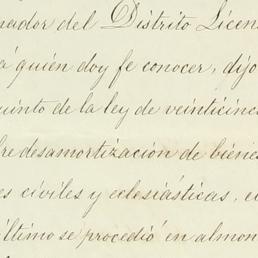 nador del Distrito Licen
á quién doy fe conocer, dijo
quinto de la ley de veinticinc
bre desamortización de biene
es civiles y eclesiásticas, e
último se procedió en almon